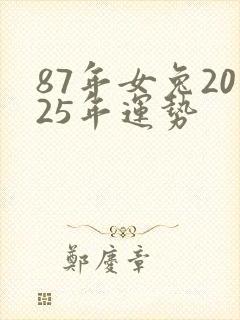 87年女兔20
25年運勢
鄭慶章